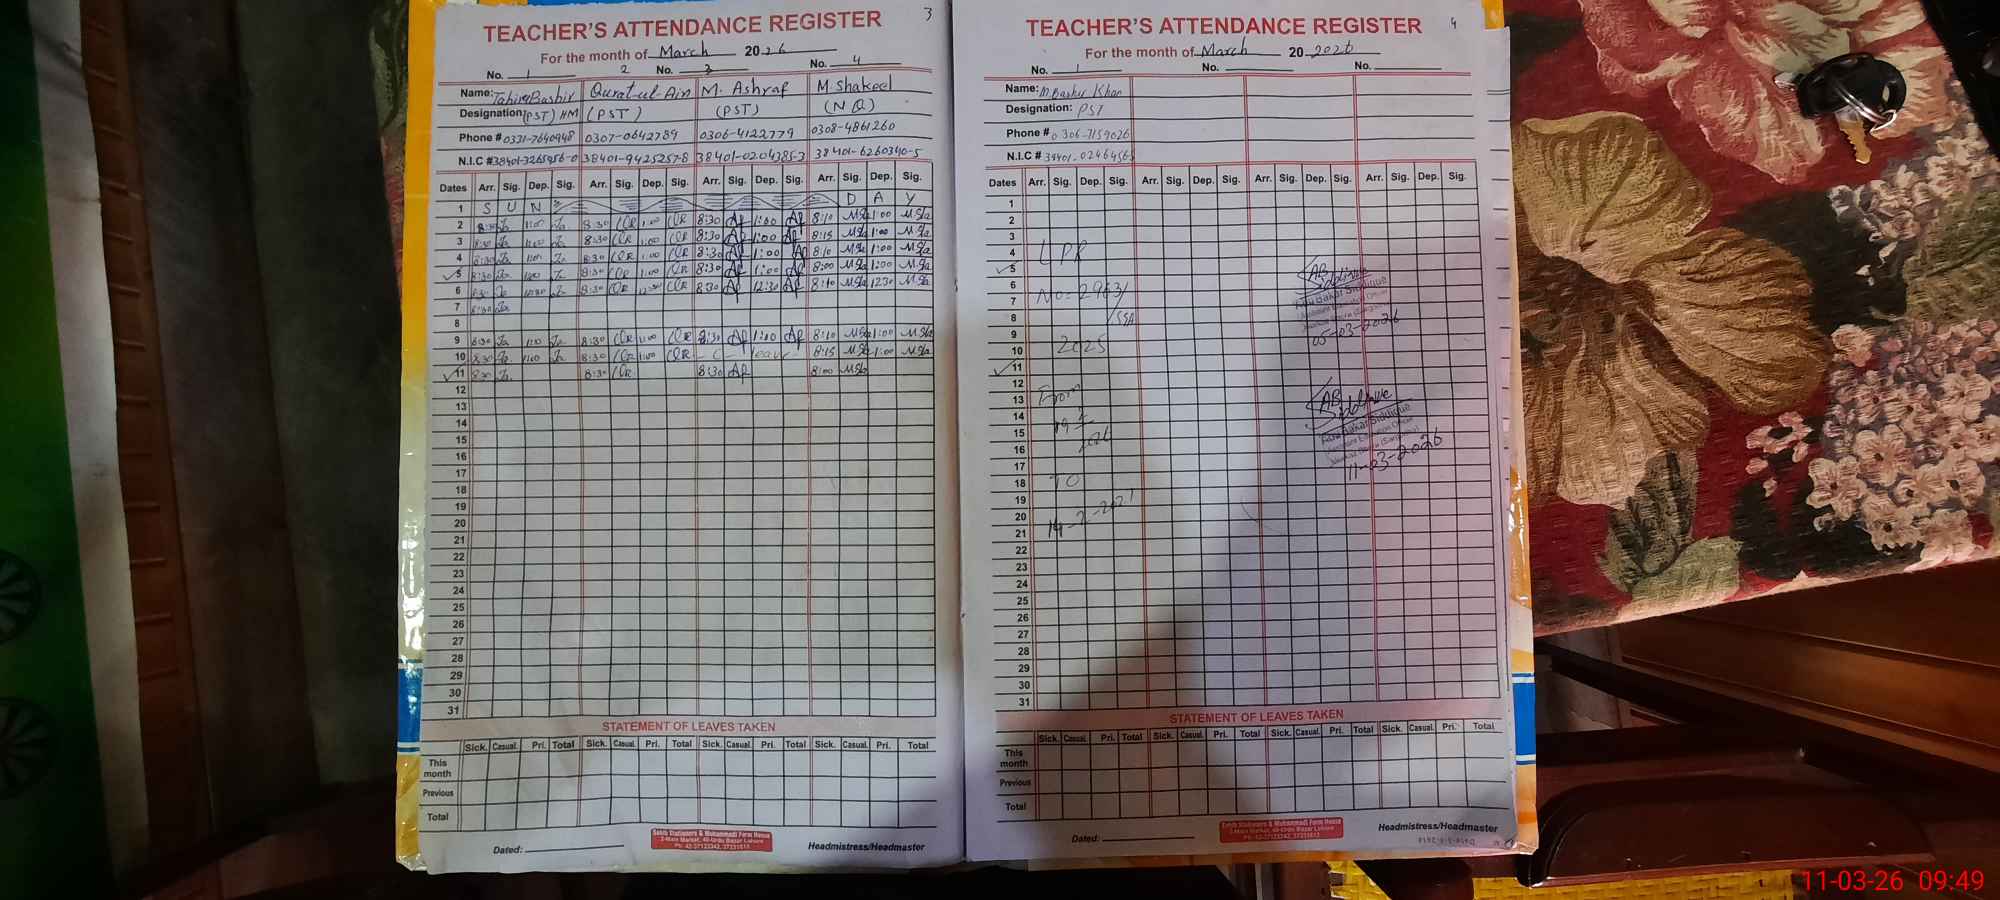 TEACHER'S ATTENDANCE REGISTER 3
For the month of March 2026
No. 1 2 No. 3 No. 4
Name: Tahira Bashir Qurat-ul Ain M. Ashraf M. Shakeel
Designation: (PST) HM (PST) (PST) (NQ)
Phone # 0331-7640948 0307-0642789 0306-4122779 0308-4861260
N.I.C # 38401-3265956-0 38401-9425257-8 38401-0204385-3 38401-6260340-5
Dates Arr. Sig. Dep. Sig. Arr. Sig. Dep. Sig. Arr. Sig. Dep. Sig. Arr. Sig. Dep. Sig.
1 S U N D A Y
2 8:30 1:00 8:30 QR 1:00 QR 8:30 1:00 8:10 1:00
3 8:30 1:00 8:30 QR 1:00 QR 8:30 1:00 8:15 1:00
4 8:30 1:00 8:30 QR 1:00 QR 8:30 1:00 8:10 1:00
5 8:30 1:00 8:30 QR 1:00 QR 8:30 1:00 8:00 1:00
6 8:30 12:30 8:30 QR 12:30 QR 8:30 12:30 8:10 12:30
7 8:30
8
9 8:30 1:00 8:30 QR 1:00 QR 8:30 1:00 8:10 1:00
10 8:30 1:00 8:30 QR 1:00 QR - C - leave 8:15 1:00
11 8:30 8:30 QR 8:30 8:00
12
13
14
15
16
17
18
19
20
21
22
23
24
25
26
27
28
29
30
31
STATEMENT OF LEAVES TAKEN
Sick. Casual. Pri. Total Sick. Casual. Pri. Total Sick. Casual. Pri. Total Sick. Casual. Pri. Total
This month
Previous
Total
Sahib Stationers & Muhammadi Form House
2-Main Market, 40-Urdu Bazar Lahore
Ph: 42-37123342, 37231613
Dated: Headmistress/Headmaster
TEACHER'S ATTENDANCE REGISTER 4
For the month of March 20 2026
No. 1 No. No.
Name: M. Bashir Khan
Designation: PST
Phone # 0306-7159026
N.I.C # 38401-0246456
Dates Arr. Sig. Dep. Sig. Arr. Sig. Dep. Sig. Arr. Sig. Dep. Sig. Arr. Sig. Dep. Sig.
1
2
3
4 LPR
5
6 AB Siddique
7 No= 2963/ Abu Bakar Siddique
8 /SSA Assistant Education Officer
9 05-03-2026
10 2025
11
12
13 From AB Siddique
14 Abu Bakar Siddique
15 Assistant Education Officer
16
17 11-03-2026
18 TO
19
20 19-2-2027
21
22
23
24
25
26
27
28
29
30
31
STATEMENT OF LEAVES TAKEN
Sick. Casual. Pri. Total Sick. Casual. Pri. Total Sick. Casual. Pri. Total Sick. Casual. Pri. Total
This month
Previous
Total
Sahib Stationers & Muhammadi Form House
2-Main Market, 40-Urdu Bazar Lahore
Ph: 42-37123342, 37231613
Dated: Headmistress/Headmaster
11-03-26 09:49